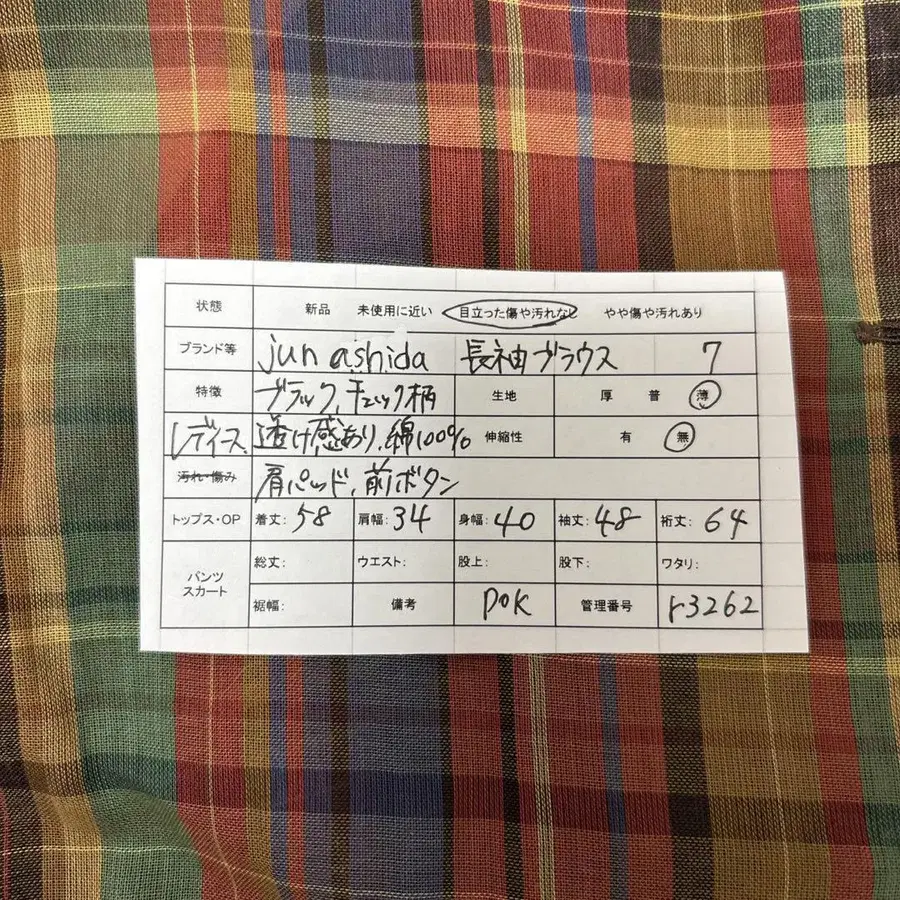 状態 新品 未使用に近い 目立った傷や汚れなし やや傷や汚れあり
ブランド等 jun ashida 長袖ブラウス 7
特徴 ブラック、チェック柄 生地 厚 普 薄
レディース、透け感あり、綿100% 伸縮性 有 無
汚れ・傷み 肩パッド、前ボタン
トップス・OP 着丈: 58 肩幅: 34 身幅: 40 袖丈: 48 裄丈: 64
パンツ スカート 総丈: ウエスト: 股上: 股下: ワタリ:
裾幅: 備考 POK 管理番号 r3262